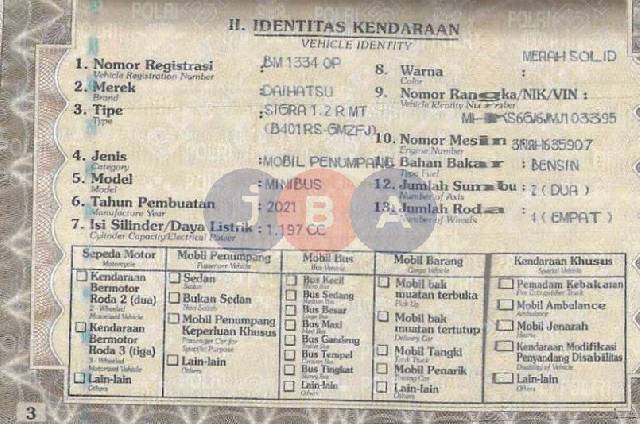 II. IDENTITAS KENDARAAN
VEHICLE IDENTITY
1. Nomor Registrasi : BM 1334 OP
Vehicle Registration Number
2. Merek : DAIHATSU
Brand
3. Tipe : SIGRA 1.2 R MT
Type
(B401RS-GMZFJ)
4. Jenis : MOBIL PENUMPANG
Category
5. Model : MINIBUS
Model
6. Tahun Pembuatan : 2021
Manufacture Year
7. Isi Silinder/Daya Listrik : 1.197 CC
Cylinder Capacity/Electrical Power
MERAH SOLID
8. Warna :
Color
9. Nomor Rangka/NIK/VIN :
Vehicle Identity Number
10. Nomor Mesin
Engine Number
Bahan Bakar : BENSIN
Type Fuel
12. Jumlah Sumbu : 2 (DUA)
Number of Axis
13. Jumlah Roda : 4 (EMPAT)
Number of Wheels
JBA
Sepeda Motor
Motorcycle
Kendaraan
Bermotor
Roda 2 (dua)
2 - Wheeled
Motorized Vehicle
Kendaraan
Bermotor
Roda 3 (tiga)
3 - Wheeled
Motorized Vehicle
Lain-lain
Others
Mobil Penumpang
Passenger Vehicle
Sedan
Sedan
Bukan Sedan
Non Sedan
Mobil Penumpang
Keperluan Khusus
Passenger Car for
Special Purpose
Lain-lain
Others
Mobil Bus
Bus Vehicle
Bus Kecil
Bus Sedang
Bus Besar
Bus Maxi
Bus Gandeng
Bus Tempel
Bus Tingkat
Lain-lain
Others
Mobil Barang
Cargo Vehicle
Mobil bak
muatan terbuka
Pick Up
Mobil bak
muatan tertutup
Delivery Car
Mobil Tangki
Tank Truck
Mobil Penarik
Towing Car
Lain-lain
Others
Kendaraan Khusus
Special Vehicle
Pemadam Kebakaran
Mobil Ambulance
Ambulance
Mobil Jenazah
Kendaraan Modifikasi
Penyandang Disabilitas
Disability of Vehicle
Lain-lain
Others
3